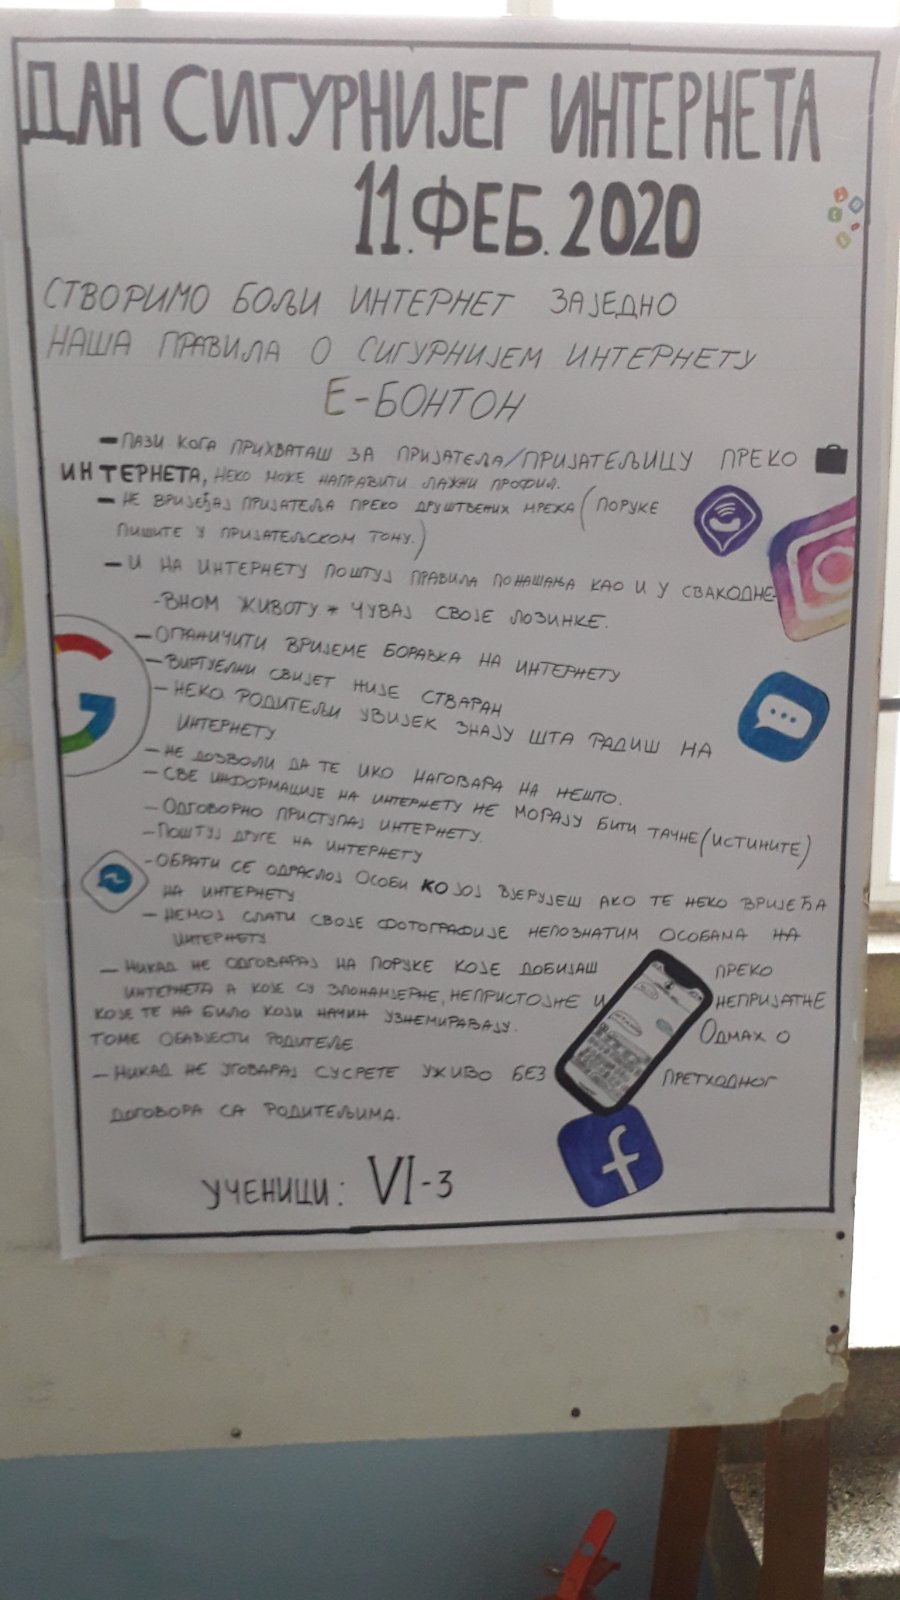 ДАН СИГУРНИЈЕГ ИНТЕРНЕТА
11.ФЕБ.2020
СТВОРИМО БОЉИ ИНТЕРНЕТ ЗАЈЕДНО
НАША ПРАВИЛА О СИГУРНИЈЕМ ИНТЕРНЕТУ
Е-БОНТОН
-ПАЗИ КОГА ПРИХВАТАШ ЗА ПРИЈАТЕЉА/ПРИЈАТЕЉИЦУ ПРЕКО
ИНТЕРНЕТА, НЕКО МОЖЕ НАПРАВИТИ ЛАЖНИ ПРОФИЛ.
- НЕ ВРИЈЕЂАЈ ПРИЈАТЕЉА ПРЕКО ДРУШТВЕНИХ МРЕЖА (ПОРУКЕ
ПИШИТЕ У ПРИЈАТЕЉСКОМ ТОНУ.)
- И НА ИНТЕРНЕТУ ПОШТУЈ ПРАВИЛА ПОНАШАЊА КАО И У СВАКОДНЕ-
-ВНОМ ЖИВОТУ * ЧУВАЈ СВОЈЕ ЛОЗИНКЕ.
-ОГРАНИЧИТИ ВРИЈЕМЕ БОРАВКА НА ИНТЕРНЕТУ
-ВИРТУЕЛНИ СВИЈЕТ НИЈЕ СТВАРАН
-НЕКО РОДИТЕЉИ УВИЈЕК ЗНАЈУ ШТА РАДИШ НА
ИНТЕРНЕТУ
-НЕ ДОЗВОЛИ ДА ТЕ ИКО НАГОВАРА НА НЕШТО.
-СВЕ ИНФОРМАЦИЈЕ НА ИНТЕРНЕТУ НЕ МОРАЈУ БИТИ ТАЧНЕ (ИСТИНИТЕ)
-ОДГОВОРНО ПРИСТУПАЈ ИНТЕРНЕТУ.
-ПОШТУЈ ДРУГЕ НА ИНТЕРНЕТУ
-ОБРАТИ СЕ ОДРАСЛОЈ ОСОБИ КОЈОЈ ВЈЕРУЈЕШ АКО ТЕ НЕКО ВРИЈЕЂА
НА ИНТЕРНЕТУ
-НЕМОЈ СЛАТИ СВОЈЕ ФОТОГРАФИЈЕ НЕПОЗНАТИМ ОСОБАМА НА
ИНТЕРНЕТУ
-НИКАД НЕ ОДГОВАРАЈ НА ПОРУКЕ КОЈЕ ДОБИЈАШ ПРЕКО
ИНТЕРНЕТА А КОЈЕ СУ ЗЛОНАМЈЕРНЕ, НЕПРИСТОЈНЕ И НЕПРИЈАТНЕ
КОЈЕ ТЕ НА БИЛО КОЈИ НАЧИН УЗНЕМИРАВАЈУ. ОДМАХ О
ТОМЕ ОБАВЈЕСТИ РОДИТЕЉЕ
-НИКАД НЕ УГОВАРАЈ СУСРЕТЕ УЖИВО БЕЗ ПРЕТХОДНОГ
ДОГОВОРА СА РОДИТЕЉИМА.
УЧЕНИЦИ: VI-3